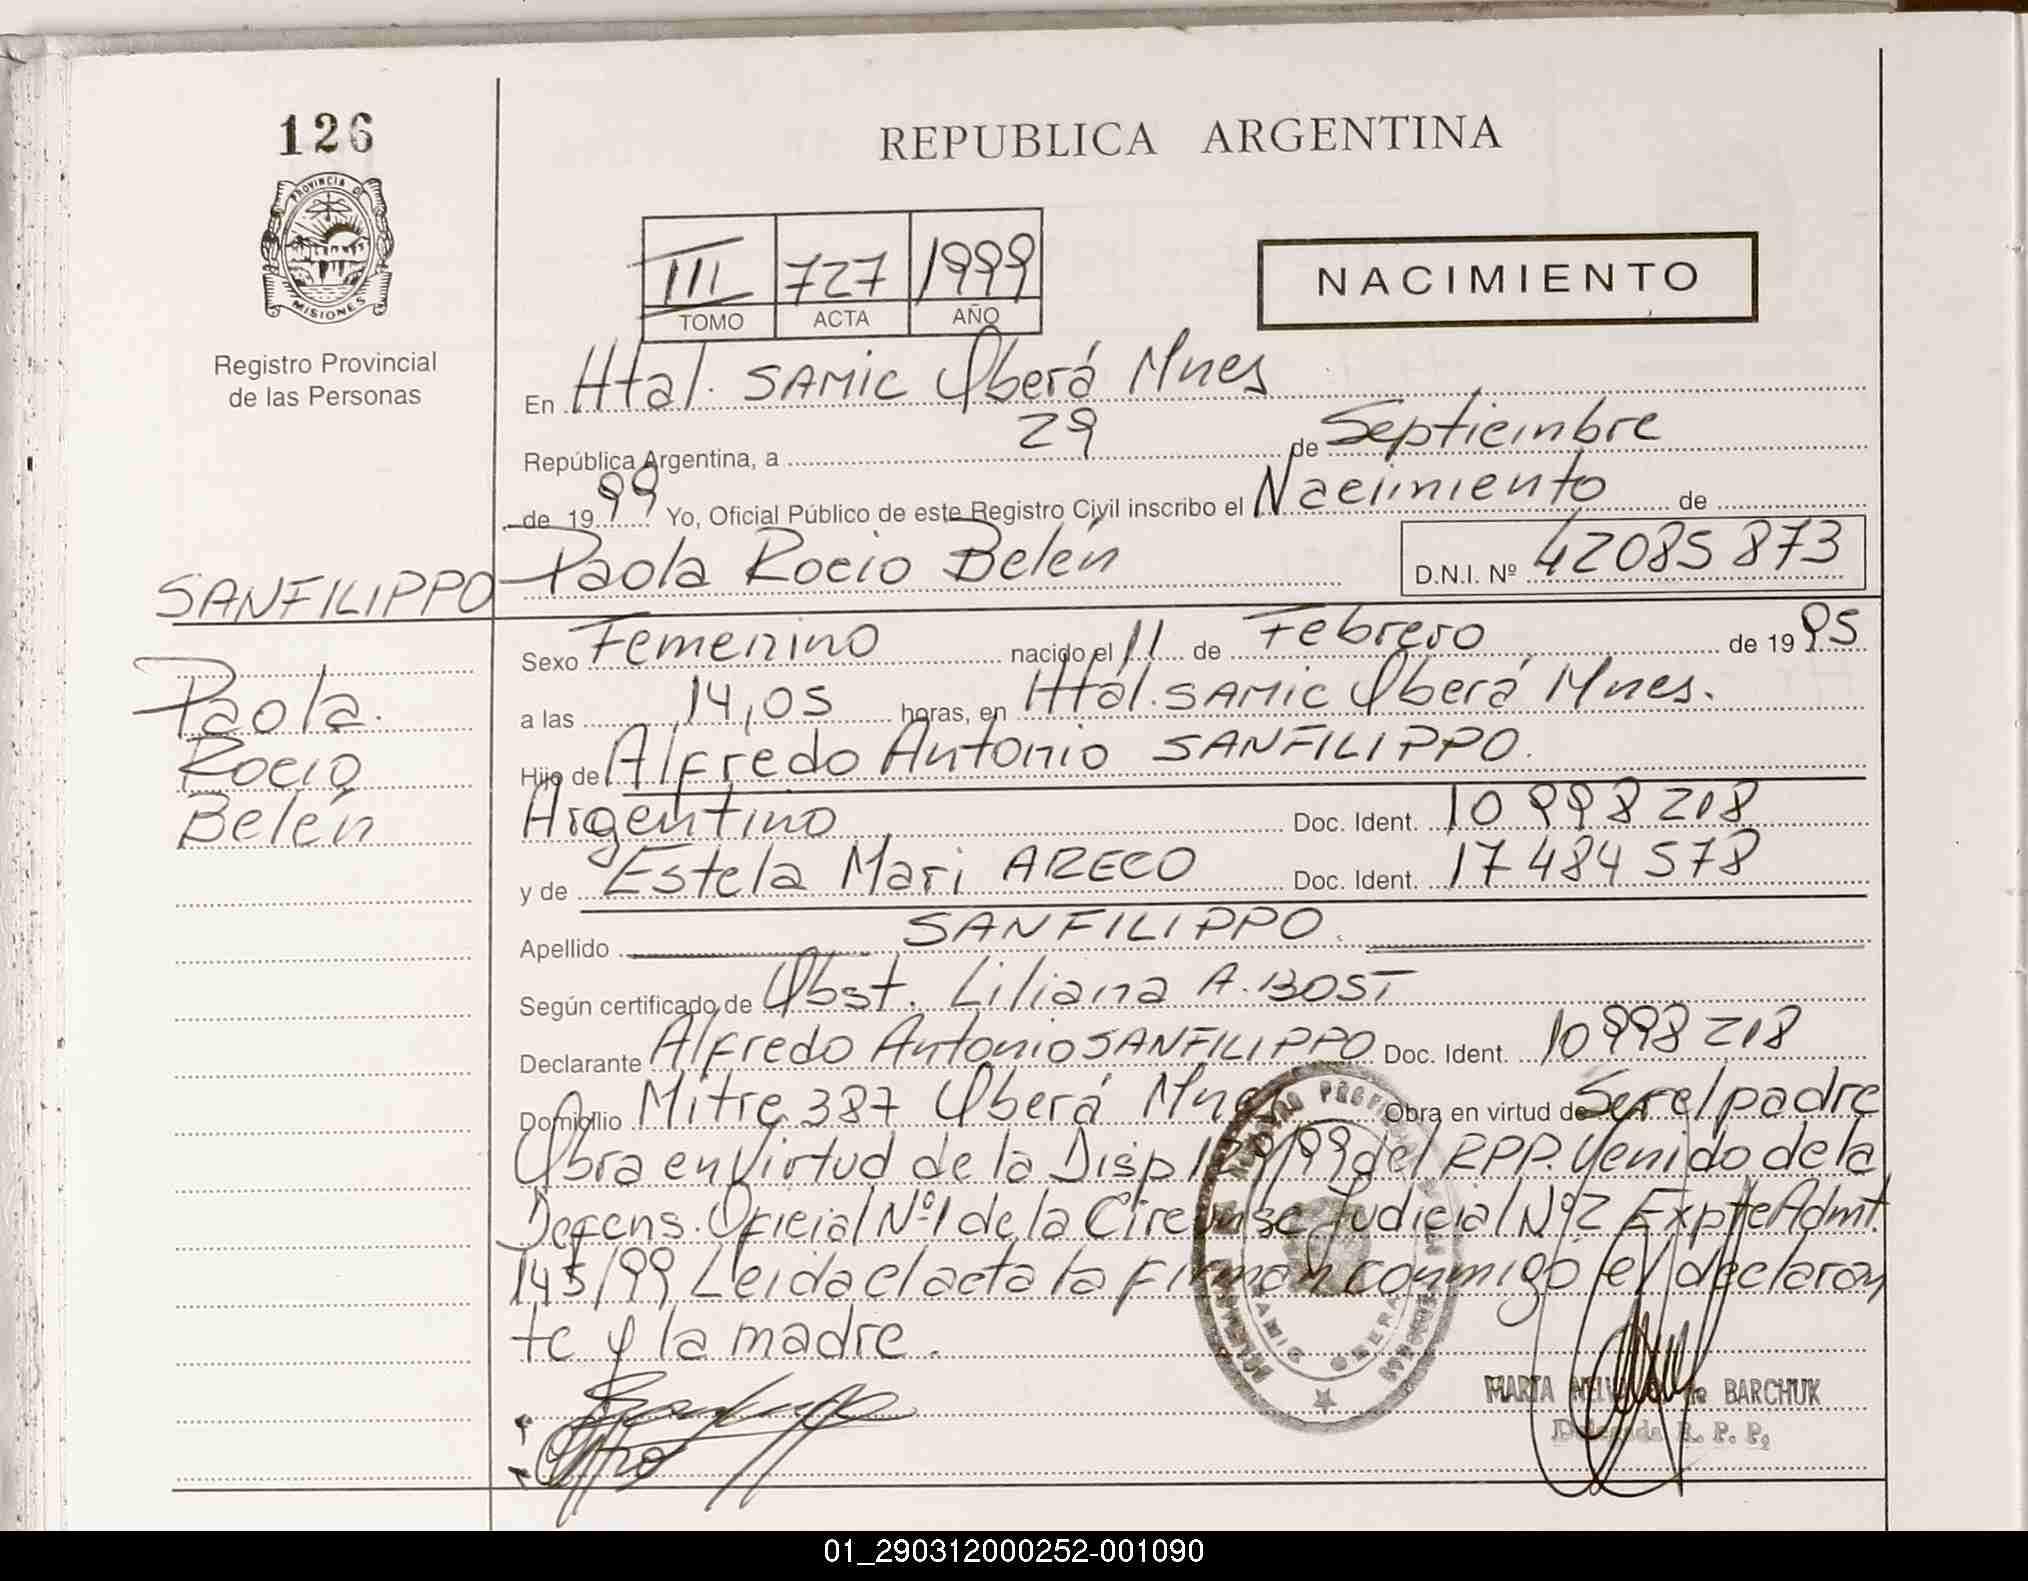 126
REPUBLICA ARGENTINA
PROVINCIA DE
MISIONES
Registro Provincial
de las Personas
III 727 1999
TOMO ACTA AÑO
NACIMIENTO
En Htal. SAMIC Oberá Mnes
República Argentina, a 29 de Septiembre
de 1999 Yo, Oficial Público de este Registro Civil inscribo el Nacimiento de
Paola Rocio Belén D.N.I. Nº 42085873
SANFILIPPO
Paola
Rocio
Belén
Sexo Femenino nacido el 11 de Febrero de 1995
a las 14,05 horas, en Htal. SAMIC Oberá Mnes.
Hijo de Alfredo Antonio SANFILIPPO.
Argentino Doc. Ident. 10 998 218
y de Estela Mari ARECO Doc. Ident. 17 484 578
Apellido SANFILIPPO.
Según certificado de Obst. Liliana A. BOST
Declarante Alfredo Antonio SANFILIPPO Doc. Ident. 10 998 218
Domicilio Mitre 387 Oberá Obra en virtud de Ser el padre
Obra en Virtud de la Disp /99 del RPP. Venido de la
Defens. Oficial Nº1 de la Judicial Nº2 Expte Admt.
145/99 Leida el acta la firman conmigo el declaran
te y la madre.
MARTA de BARCHUK
Delegada R. P. P.
01_290312000252-001090